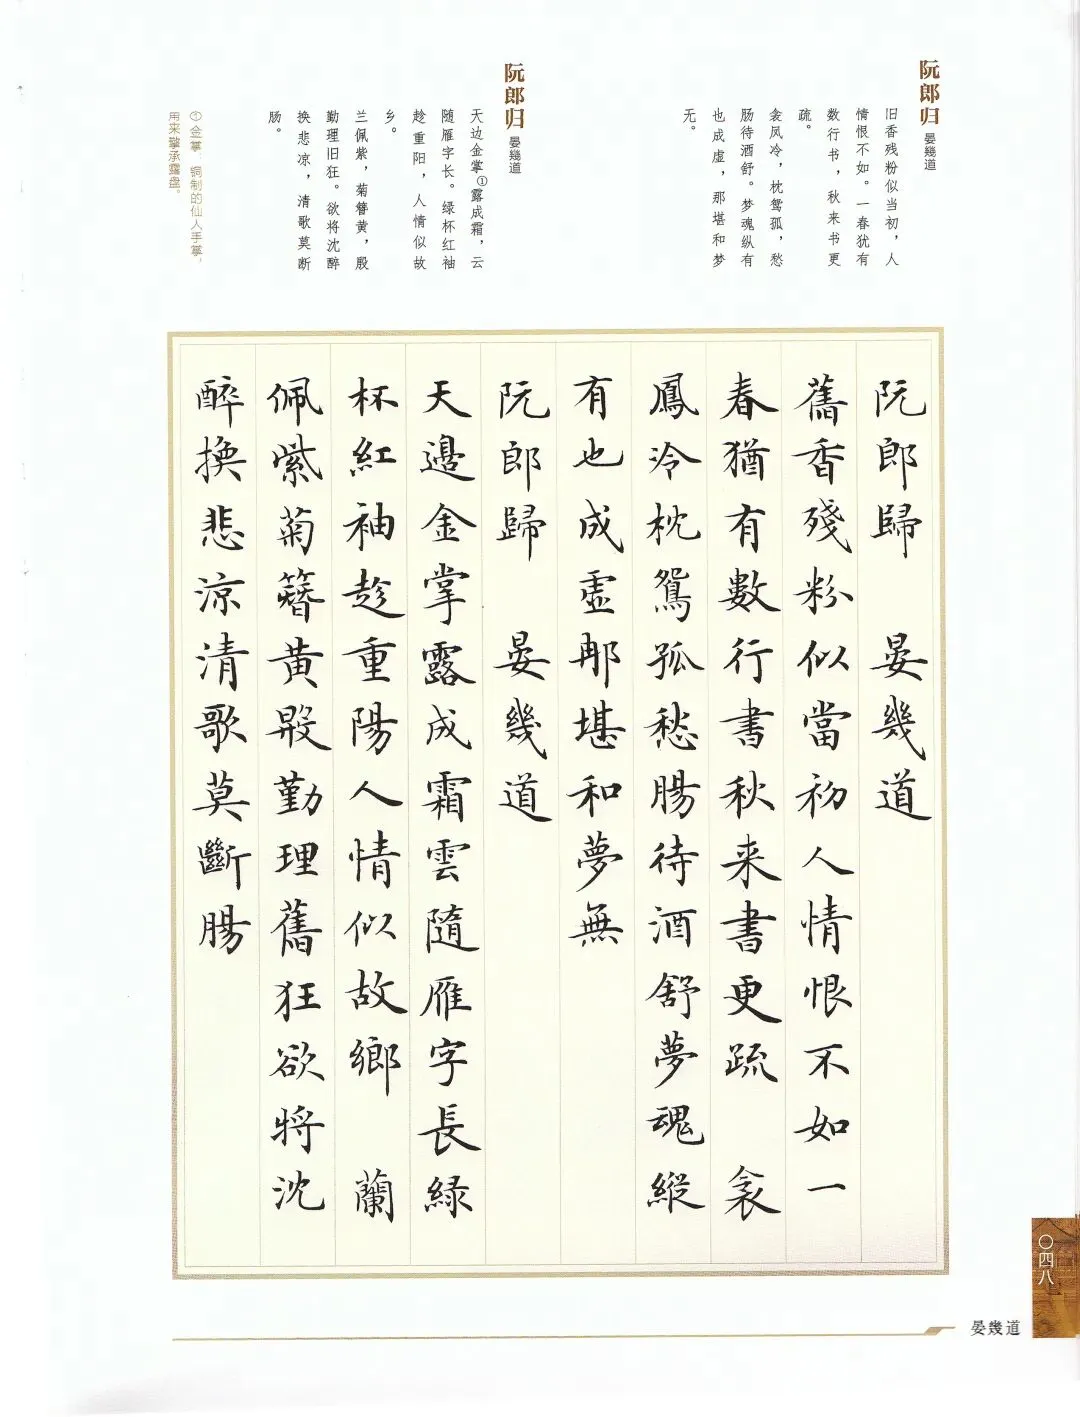 阮郎归
晏幾道
旧香残粉似当初，人
情恨不如。一春犹有
数行书，秋来书更
疏。
衾凤冷，枕鸳孤，愁
肠待酒舒。梦魂纵有
也成虚，那堪和梦
无。
阮郎归
晏幾道
天边金掌①露成霜，云
随雁字长。绿杯红袖
趁重阳，人情似故
乡。
兰佩紫，菊簪黄，殷
勤理旧狂。欲将沈醉
换悲凉，清歌莫断
肠。
①金掌：铜制的仙人手掌，
用来擎承露盘。
阮郎歸 晏幾道
舊香殘粉似當初人情恨不如一
春猶有數行書秋来書更疏 衾
鳳冷枕鴛孤愁腸待酒舒夢魂縱
有也成虛那堪和夢無
阮郎歸 晏幾道
天邊金掌露成霜雲隨雁字長緑
杯紅袖趁重陽人情似故鄉 蘭
佩紫菊簪黄殷勤理舊狂欲将沈
醉換悲涼清歌莫斷腸
〇四八
晏幾道